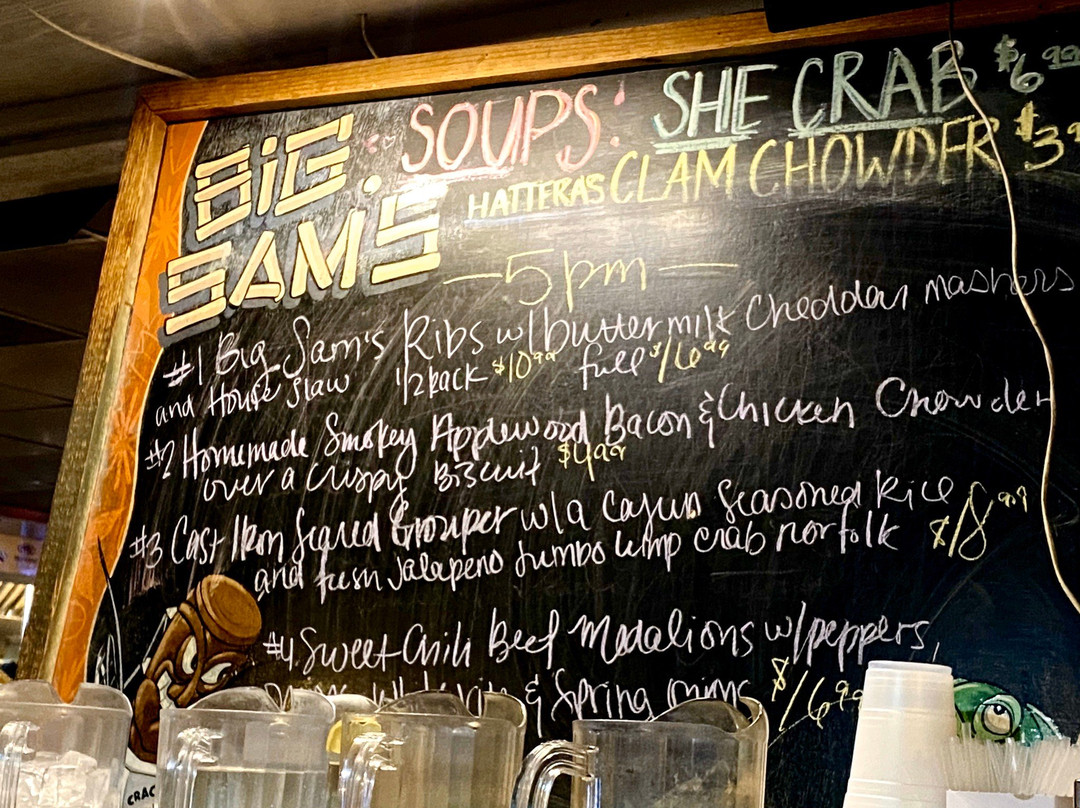 BIG SAM'S
SOUPS: SHE CRAB $6.99
HATTERAS CLAM CHOWDER $3.9
—5pm—
#1 Big Sam's Ribs w/buttermilk Cheddar mashers
and House Slaw 1/2 Rack $10.99 full $16.99
#2 Homemade Smokey Applewood Bacon & Chicken Chowder
over a crispy Biscuit $4.99
#3 Cast Iron Seared Grouper w/a Cajun Seasoned Rice
and fresh Jalapeno Jumbo lump crab norfolk $18.99
#4 Sweet Chili Beef Medalions w/peppers,
White & Spring $16.99
CRAC